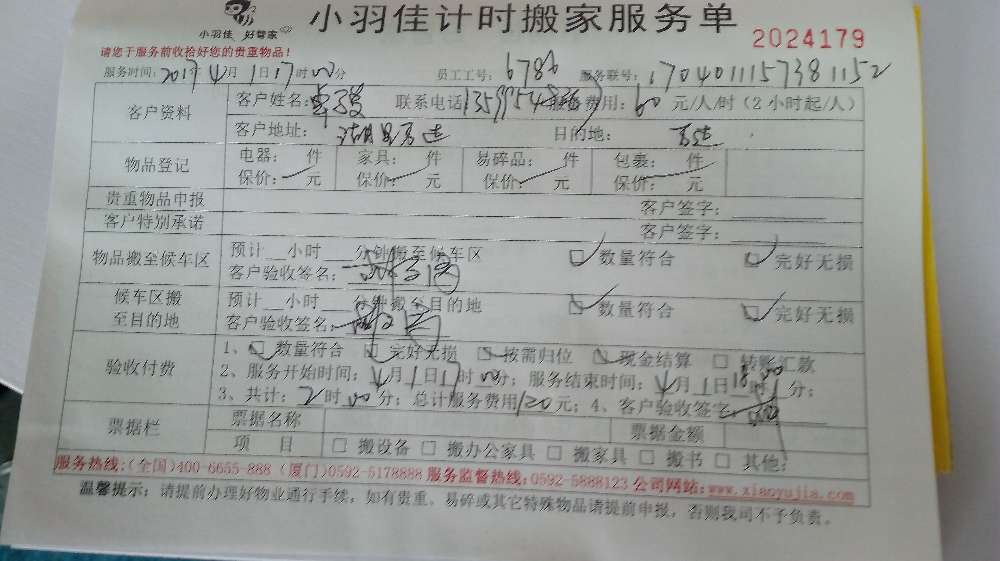 小羽佳 好管家
小羽佳计时搬家服务单
2024179
请您于服务前收拾好您的贵重物品！
服务时间：2017年4月1日17时00分 员工工号：6786 服务联号：1704011157381152
客户资料 客户姓名： 联系电话 服务费用：60元/人/时（2小时起/人）
客户地址： 目的地：
物品登记 电器： 件 家具： 件 易碎品： 件 包裹： 件
保价： 元 保价： 元 保价： 元 保价： 元
贵重物品申报 客户签字：
客户特别承诺 客户签字：
物品搬至候车区 预计 小时 分钟搬至候车区 数量符合 完好无损
客户验收签名：
候车区搬至目的地 预计 小时 分钟搬至目的地 数量符合 完好无损
客户验收签名：
验收付费 1、数量符合 完好无损 按需归位 现金结算 转账汇款
2、服务开始时间：4月1日17时00分；服务结束时间：4月1日 时 分；
3、共计：2时00分；总计服务费用120元；4、客户验收签字
票据栏 票据名称 票据金额
项 目 搬设备 搬办公家具 搬家具 搬书 其他：
服务热线：（全国）400-6655-888（厦门）0592-5178888 服务监督热线：0592-5888123 公司网站：www.xiaoyujia.com
温馨提示：请提前办理好物业通行手续，如有贵重、易碎或其它特殊物品请提前申报，否则我司不予负责。